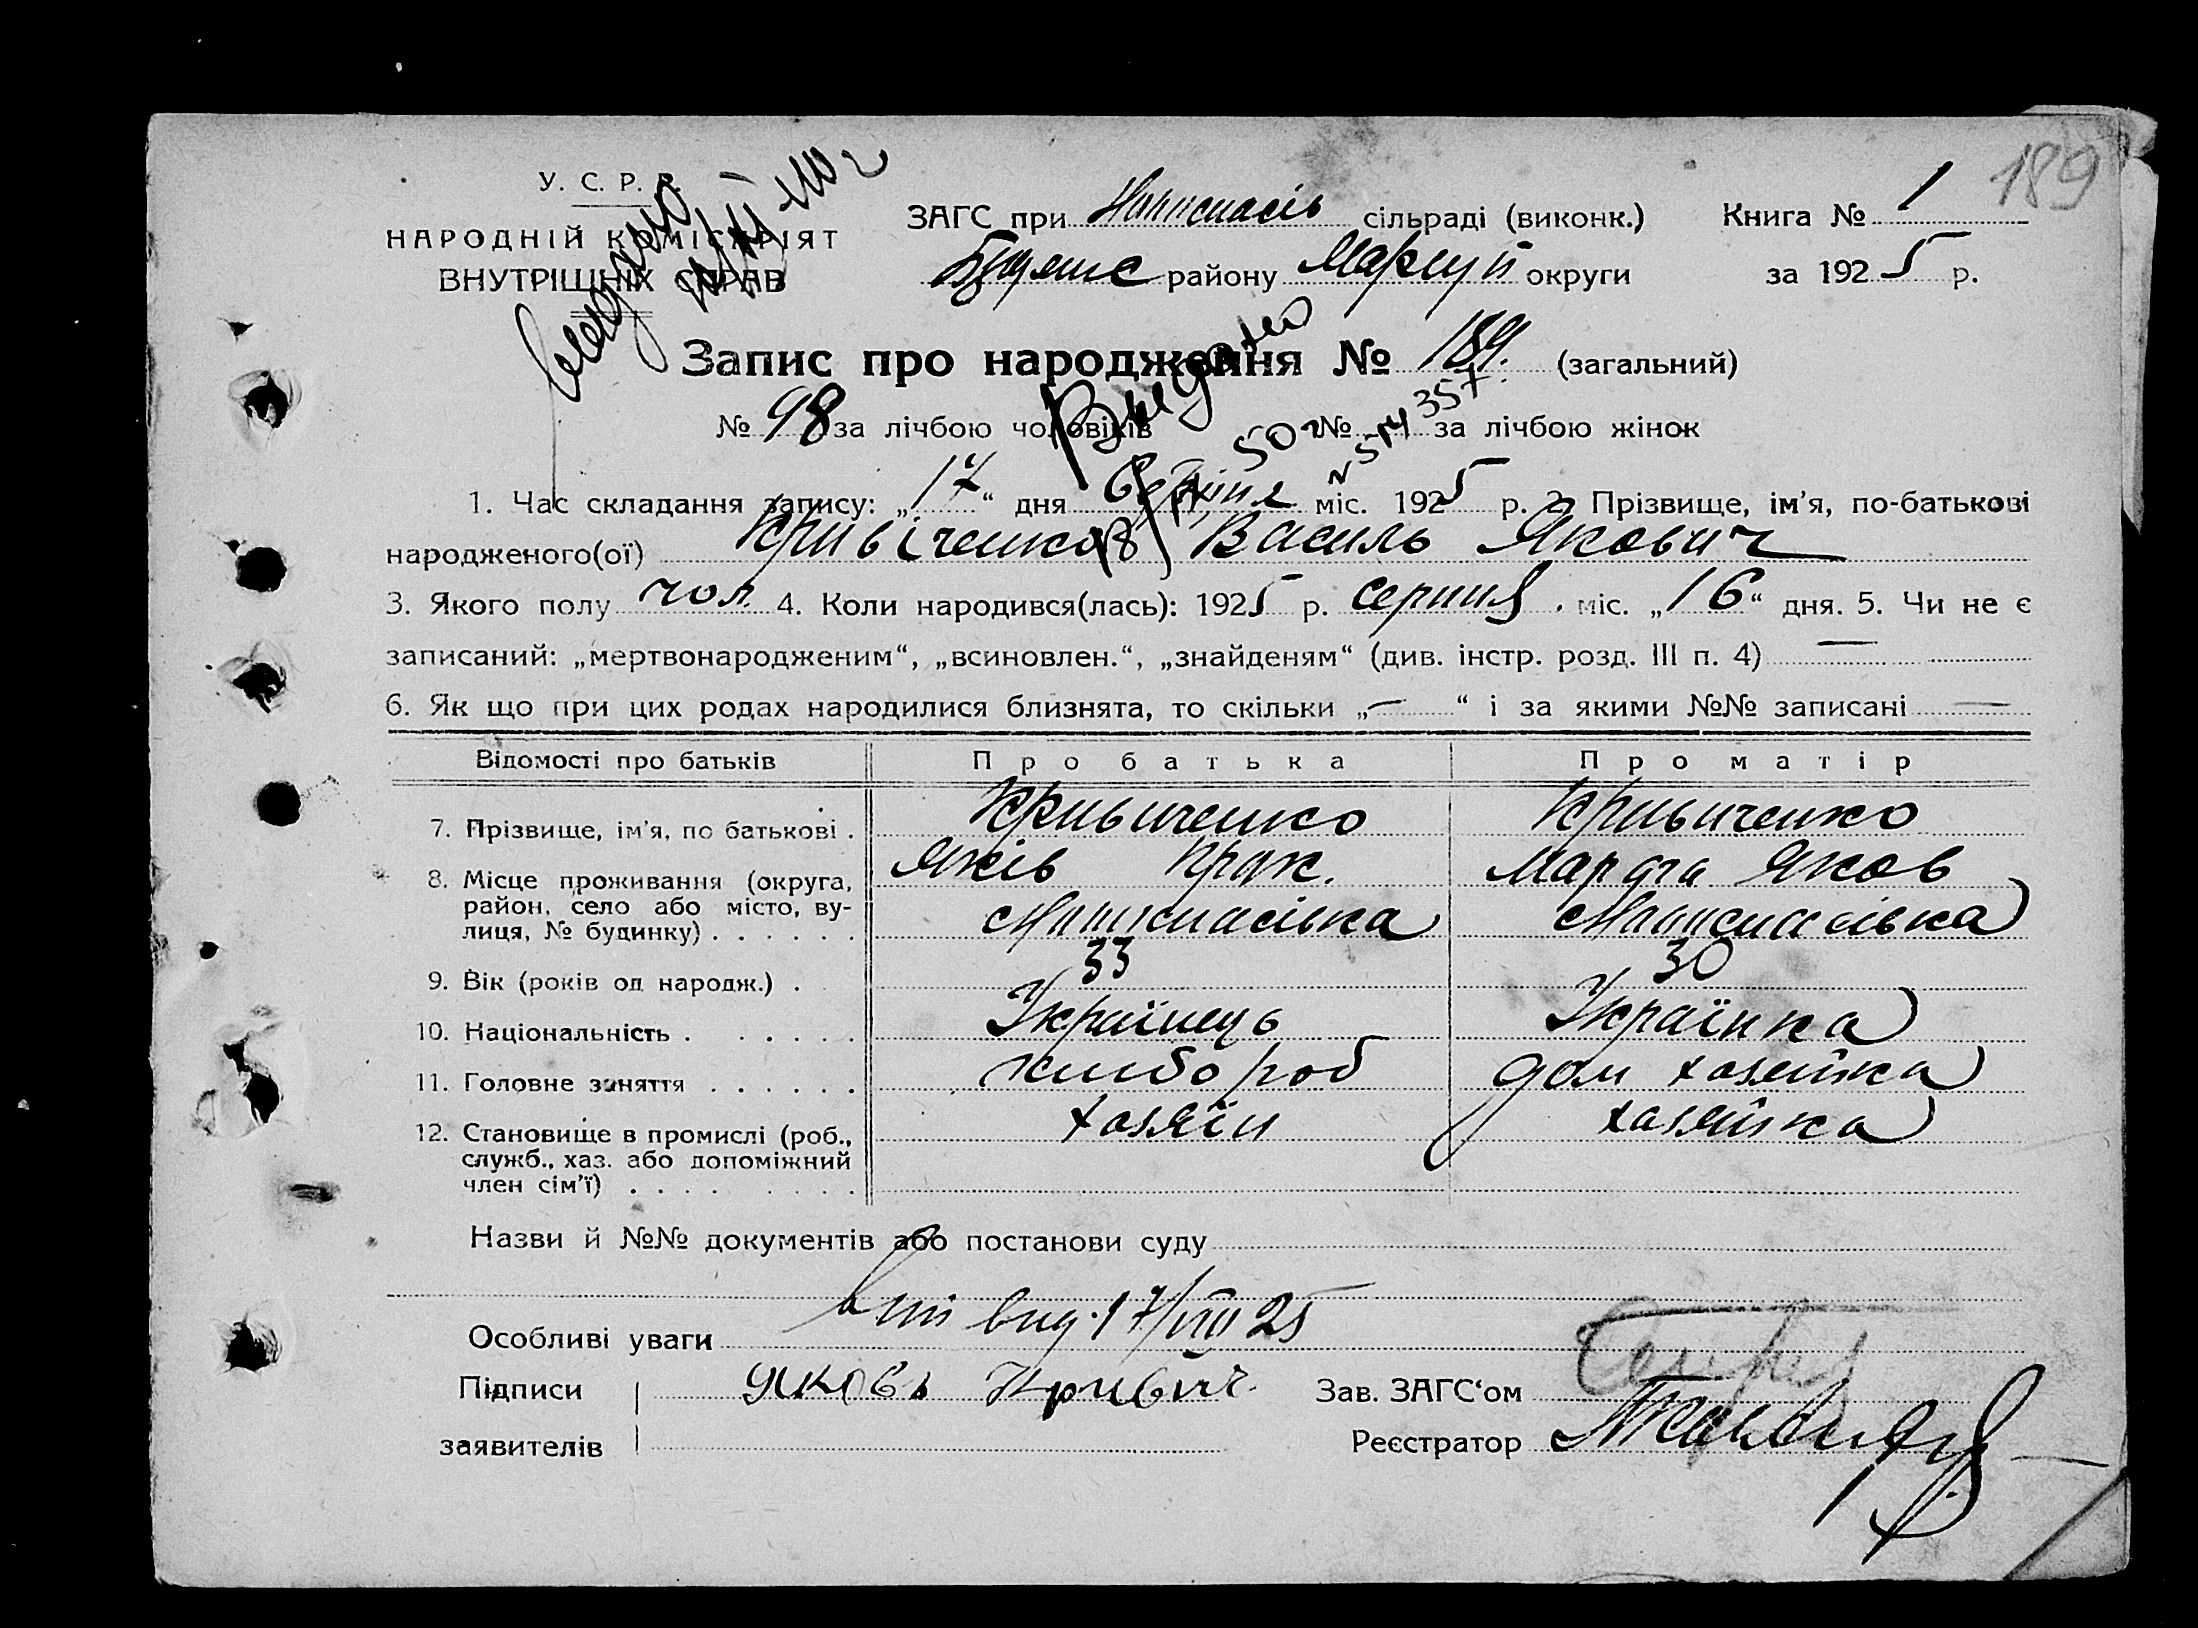 189
У. С. Р. Р.
НАРОДНІЙ КОМІСАРІЯТ
ВНУТРІШНІХ СПРАВ
ЗАГС при сільраді (виконк.) Книга № 1
району Маріуп округи за 1925 р.
Запис про народження № 189. (загальний)
№ 98 за лічбою чоловіків № за лічбою жінок
Видано
1. Час складання запису: „17“ дня Серпня міс. 1925 р. 2. Прізвище, ім'я, по-батькові
народженого(ої) Кривіченко Василь Якович
3. Якого полу чол. 4. Коли народився(лась): 1925 р. серпня міс. „16“ дня. 5. Чи не є
записаний: „мертвонародженим“, „всиновлен.“, „знайденям“ (див. інстр. розд. III п. 4) —
6. Як що при цих родах народилися близнята, то скільки „—“ і за якими №№ записані —
Відомості про батьків Про батька Про матір
7. Прізвище, ім'я, по батькові . Кривиченко Кривиченко
Яків Прок. Марфа Яков
8. Місце проживання (округа,
район, село або місто, ву-
лиця, № будинку) . . . . . .
9. Вік (років од народж.) . 33 30
10. Національність . . . . . . Українець Українка
11. Головне заняття . . . . . . хлібороб дом хазяйка
12. Становище в промислі (роб., хазяїн хазяйка
служб., хаз. або допоміжний
член сім'ї) . . . . . . . .
Назви й №№ документів або постанови суду
Особливі уваги вип вид. 17/VIII 25
Підписи Яковъ Кривич. Зав. ЗАГС‘ом
заявителів Реєстратор